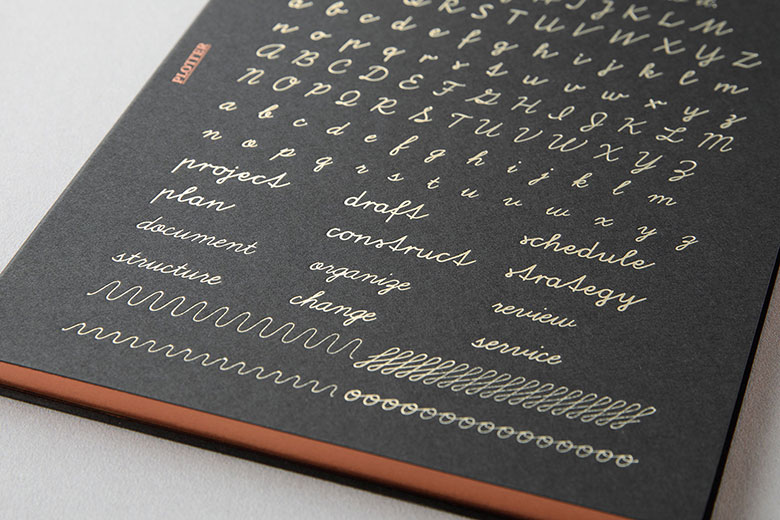 J K L M
Q R S T U V W X Y Z
a b c d e f g h i j k l m
n o p q r s t u v w x y z
A B C D E F G H I J K L M
N O P Q R S T U V W X Y Z
a b c d e f g h i j k l m
n o p q r s t u v w x y z
PLOTTER
project draft schedule
plan construct strategy
document organize review
structure change service